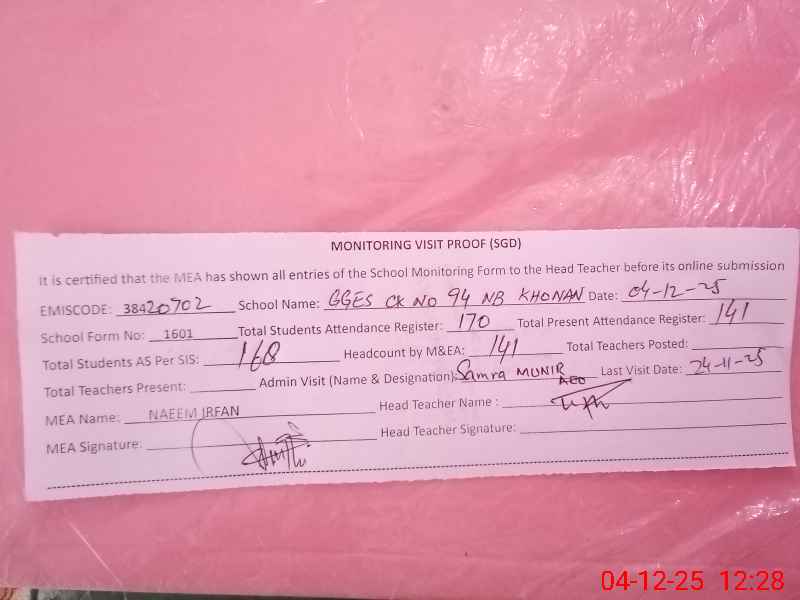 MONITORING VISIT PROOF (SGD)
It is certified that the MEA has shown all entries of the School Monitoring Form to the Head Teacher before its online submission
EMISCODE: 38420702 School Name: GGES CK NO 94 NB KHONAN Date: 04-12-25
School Form No: 1601 Total Students Attendance Register: 170 Total Present Attendance Register: 141
Total Students AS Per SIS: 168 Headcount by M&EA: 141 Total Teachers Posted:
Total Teachers Present: Admin Visit (Name & Designation): Samra MUNIR AEO Last Visit Date: 24-11-25
MEA Name: NAEEM IRFAN Head Teacher Name :
MEA Signature: Head Teacher Signature:
04-12-25 12:28